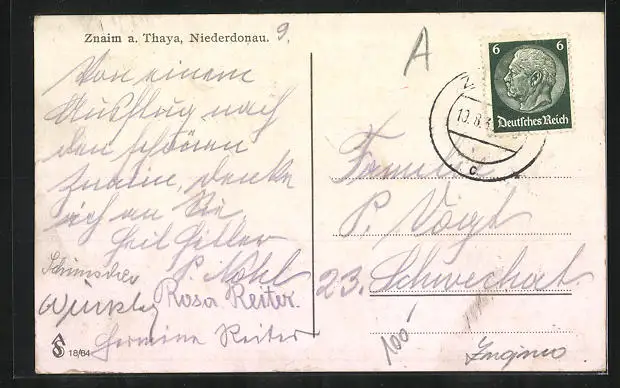 Znaim a. Thaya, Niederdonau. 9.
Von einem
Ausflug nach
den schönen
Znaim, denke
ich an Sie.
Heil Hitler
P. Nohel
Rosa Reiter.
Hermine Reiter
18/64
A
6 6
Deutsches Reich
10.8.3
c
Familie
P. Voigt
23. Schwechat.
100